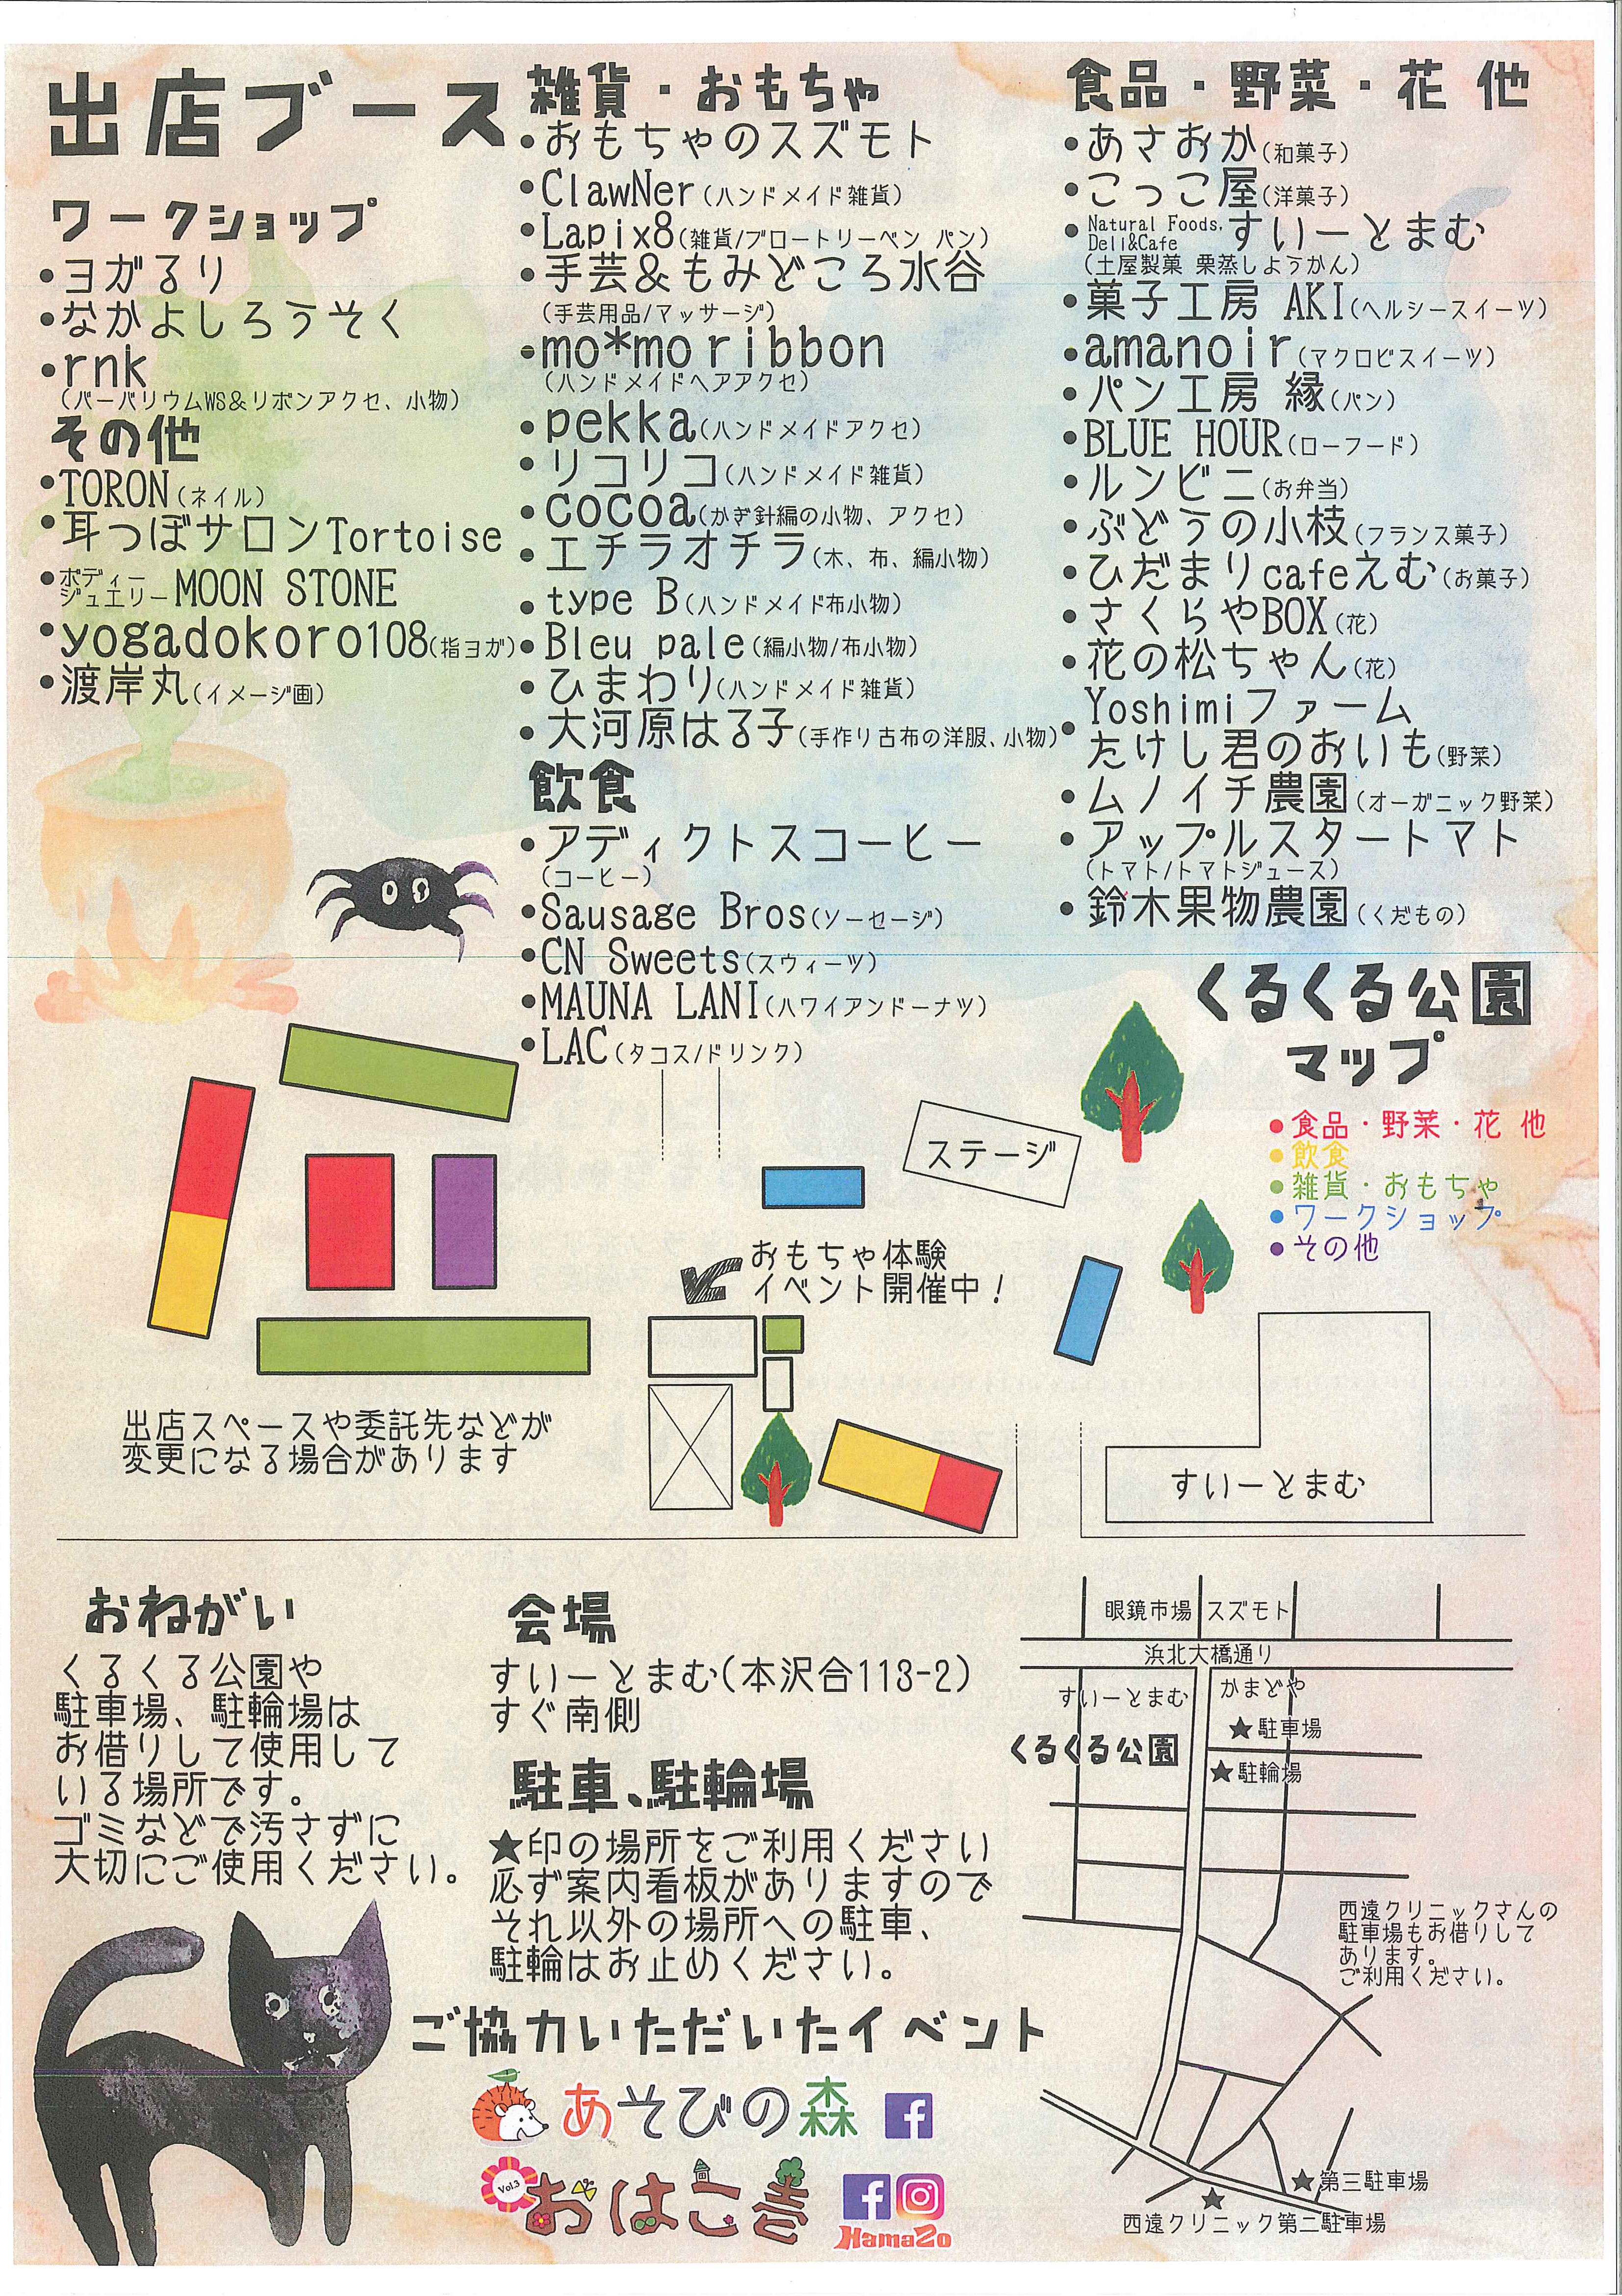 出店ブース
ワークショップ
・ヨガるり
・なかよしろうそく
・rnk
(バーバリウムWS&リボンアクセ、小物)
その他
・TORON(ネイル)
・耳つぼサロンTortoise
・ボディージュエリーMOON STONE
・yogadokoro108(指ヨガ)
・渡岸丸(イメージ画)
雑貨・おもちゃ
・おもちゃのスズモト
・ClawNer(ハンドメイド雑貨)
・Lapix8(雑貨/ブロートリーベン パン)
・手芸&もみどころ水谷
(手芸用品/マッサージ)
・mo*mo ribbon
(ハンドメイドヘアアクセ)
・pekka(ハンドメイドアクセ)
・リコリコ(ハンドメイド雑貨)
・cocoa(かぎ針編の小物、アクセ)
・エチラオチラ(木、布、編小物)
・type B(ハンドメイド布小物)
・Bleu pale(編小物/布小物)
・ひまわり(ハンドメイド雑貨)
・大河原はる子(手作り古布の洋服、小物)
飲食
・アディクトスコーヒー
(コーヒー)
・Sausage Bros(ソーセージ)
・CN Sweets(スウィーツ)
・MAUNA LANI(ハワイアンドーナツ)
・LAC(タコス/ドリンク)
食品・野菜・花 他
・あさおか(和菓子)
・こっこ屋(洋菓子)
・Natural Foods, Deli&Cafe すいーとまむ
(土屋製菓 栗蒸しようかん)
・菓子工房 AKI(ヘルシースイーツ)
・amanoir(マクロビスイーツ)
・パン工房 縁(パン)
・BLUE HOUR(ローフード)
・ルンビニ(お弁当)
・ぶどうの小枝(フランス菓子)
・ひだまりcafeえむ(お菓子)
・さくらやBOX(花)
・花の松ちゃん(花)
・Yoshimiファーム
たけし君のおいも(野菜)
・ムノイチ農園(オーガニック野菜)
・アップルスタートマト
(トマト/トマトジュース)
・鈴木果物農園(くだもの)
くるくる公園
マップ
・食品・野菜・花 他
・飲食
・雑貨・おもちゃ
・ワークショップ
・その他
ステージ
おもちゃ体験
イベント開催中!
出店スペースや委託先などが
変更になる場合があります
すいーとまむ
おねがい
くるくる公園や
駐車場、駐輪場は
お借りして使用して
いる場所です。
ゴミなどで汚さずに
大切にご使用ください。
会場
すいーとまむ(本沢合113-2)
すぐ南側
駐車、駐輪場
★印の場所をご利用ください
必ず案内看板がありますので
それ以外の場所への駐車、
駐輪はお止めください。
ご協力いただいたイベント
あそびの森
Vol.3 おはこ巻
HamaZo
眼鏡市場 スズモト
浜北大橋通り
すいーとまむ かまどや
★駐車場
くるくる公園
★駐輪場
西遠クリニックさんの
駐車場もお借りして
あります。
ご利用ください。
★第三駐車場
★
西遠クリニック第二駐車場